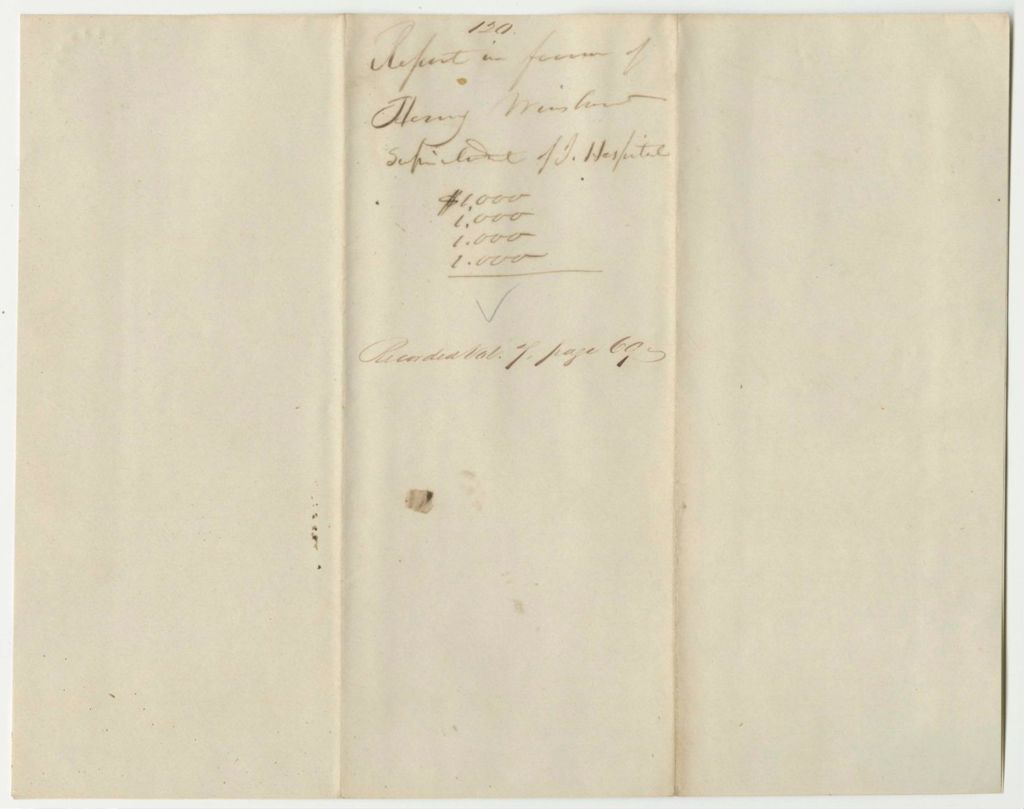 120.
Report in favour of
Henry Winslow
Supintendent of I. Hospital
$1,000
1,000
1.000
1.000
Recorded Vol. 7. page 69